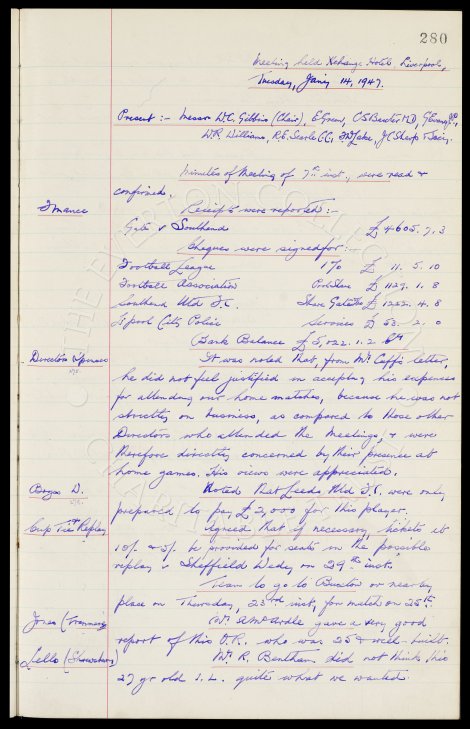 280
Meeting held Xchange Hotel, Liverpool,
Tuesday, Jan'y 14, 1947.
Present :- Messrs W.C. Gibbins (Chair), E. Green, C.S. Baxter M.D., G. Evans J.P.,
W.R. Williams, R.E. Searle C.C., J.C. Sharp & Secy.
Minutes of Meeting of 7th inst., were read &
confirmed.
Finance Receipts were reported :-
Gate v Southend £4605. 7. 3
Cheques were signed for :-
Football League 1% £ 11. 5. 10
Football Association £ 1129. 1. 8
Southend Utd F.C. Share Gate £ 1252. 4. 8
L'pool City Police Services £ 53. 2. 0
Bank Balance £5,122. 1. 2
Directors Expenses It was noted that, from Mr Cuff's letter,
he did not feel justified in accepting his expenses
for attending our home matches, because he was not
strictly on business, as compared to those other
Directors who attended the Meetings, & were
therefore directly concerned by their presence at
home games. His views were appreciated.
Boyes W. Noted that Leeds Utd F.C. were only
prepared to pay £2,000 for this player.
Cup Tie Replay Agreed that if necessary, tickets at
10/- & 5/- be provided for seats in the possible
replay v Sheffield Wedy on 29th inst.
Team to go to Buxton or nearby
place on Thursday, 23rd inst, for match on 25th.
Jones (Tranmere) Mr. A. McArdle gave a very good
report of this O.R. who was 25 & well built.
Lello (Shrewsbury) Mr R. Bentham did not think this
27 yr old I.L. quite what we wanted.